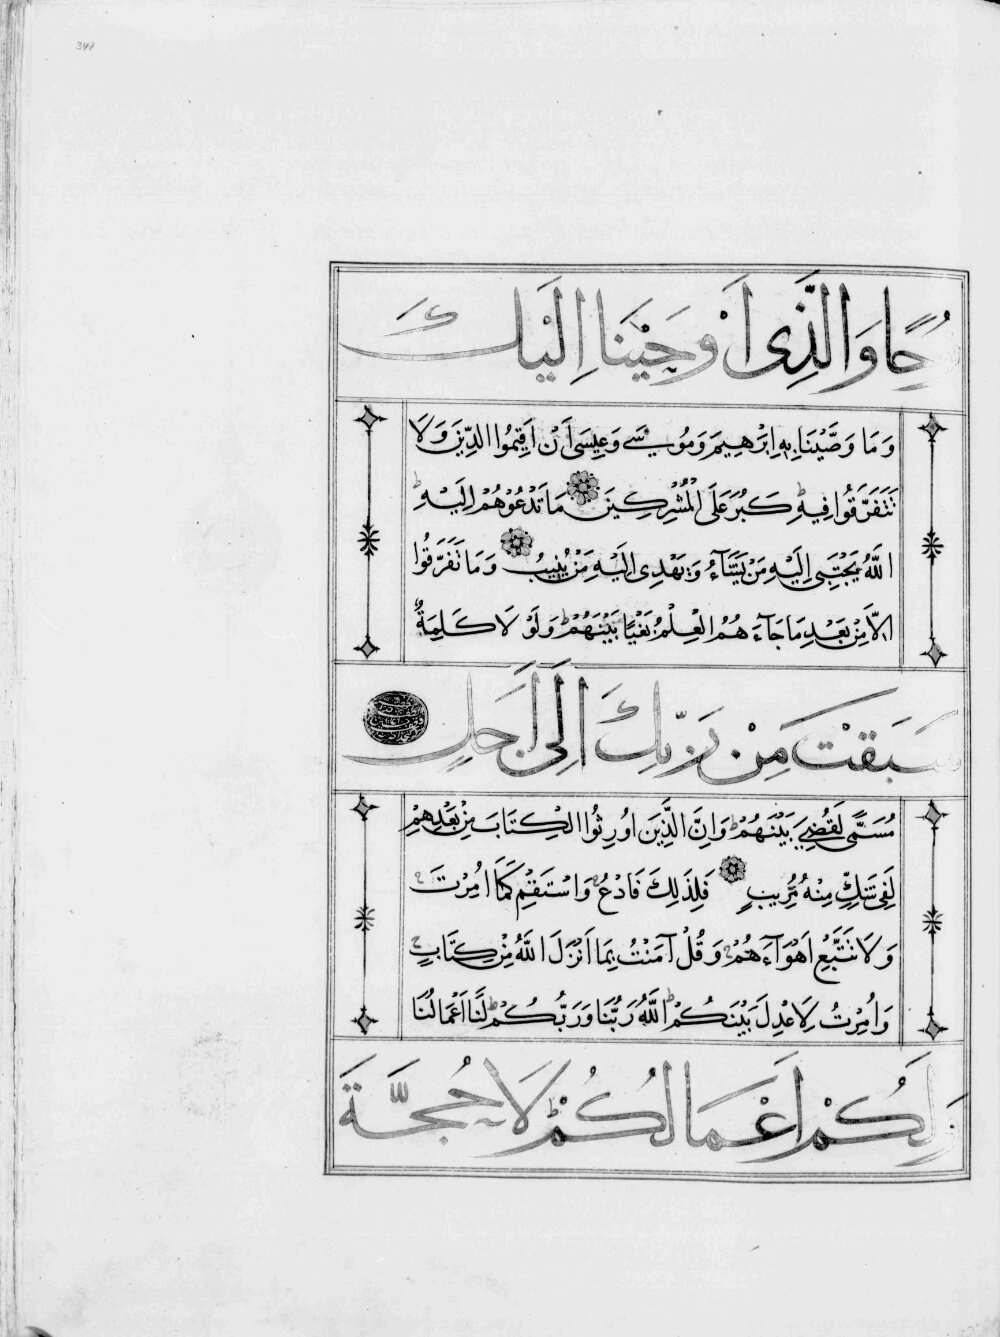 347
حًا وَالَّذِى اَوْحَيْنَا اِلَيْكَ
وَمَا وَصَّيْنَا بِهِ اِبْرَهِيمَ وَمُوسَى وَعِيسَى اَنْ اَقِيمُوا الدِّينَ وَلَا
تَتَفَرَّقُوا فِيهِ كَبُرَ عَلَى الْمُشْرِكِينَ مَا تَدْعُوهُمْ اِلَيْهِ
اَللّٰهُ يَجْتَبِى اِلَيْهِ مَنْ يَشَآءُ وَيَهْدِى اِلَيْهِ مَنْ يُنِيبُ وَمَا تَفَرَّقُوا
اِلَّا مِنْ بَعْدِ مَا جَآءَ هُمُ الْعِلْمُ بَغْيًا بَيْنَهُمْ وَلَوْ لَا كَلِمَةٌ
سَبَقَتْ مِنْ رَبِّكَ اِلَى اَجَلٍ
مُسَمًّى لَقُضِىَ بَيْنَهُمْ وَاِنَّ الَّذِينَ اُورِثُوا الْكِتَابَ مِنْ بَعْدِهِمْ
لَفِى شَكٍّ مِنْهُ مُرِيبٍ فَلِذَلِكَ فَادْعُ وَاسْتَقِمْ كَمَا اُمِرْتَ
وَلَا تَتَّبِعْ اَهْوَآءَ هُمْ وَقُلْ آمَنْتُ بِمَا اَنْزَلَ اللّٰهُ مِنْ كِتَابٍ
وَاُمِرْتُ لِاَعْدِلَ بَيْنَكُمْ اَللّٰهُ رَبُّنَا وَرَبُّكُمْ لَنَا اَعْمَالُنَا
وَلَكُمْ اَعْمَالُكُمْ لَا حُجَّةَ